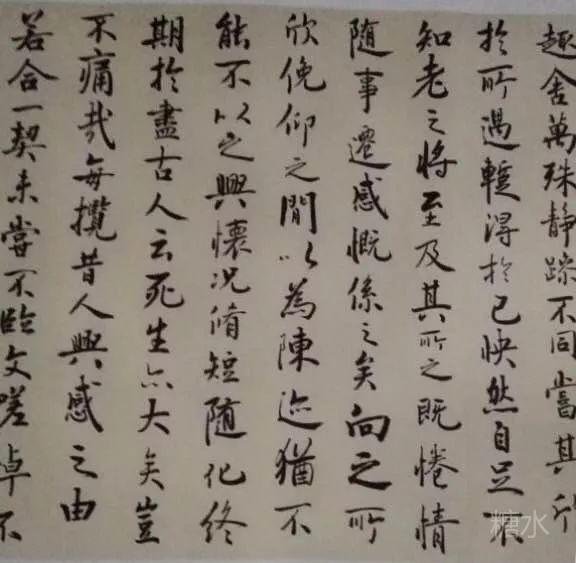 趣舍萬殊静躁不同當其所
於所遇蹔得於己快然自足不
知老之將至及其所之既惓情
随事遷感慨係之矣向之所
欣俛仰之間以為陳迹猶不
能不以之興懷況脩短随化終
期於盡古人云死生亦大矣豈
不痛哉每攬昔人興感之由
若合一契未嘗不臨文嗟悼不
糖水